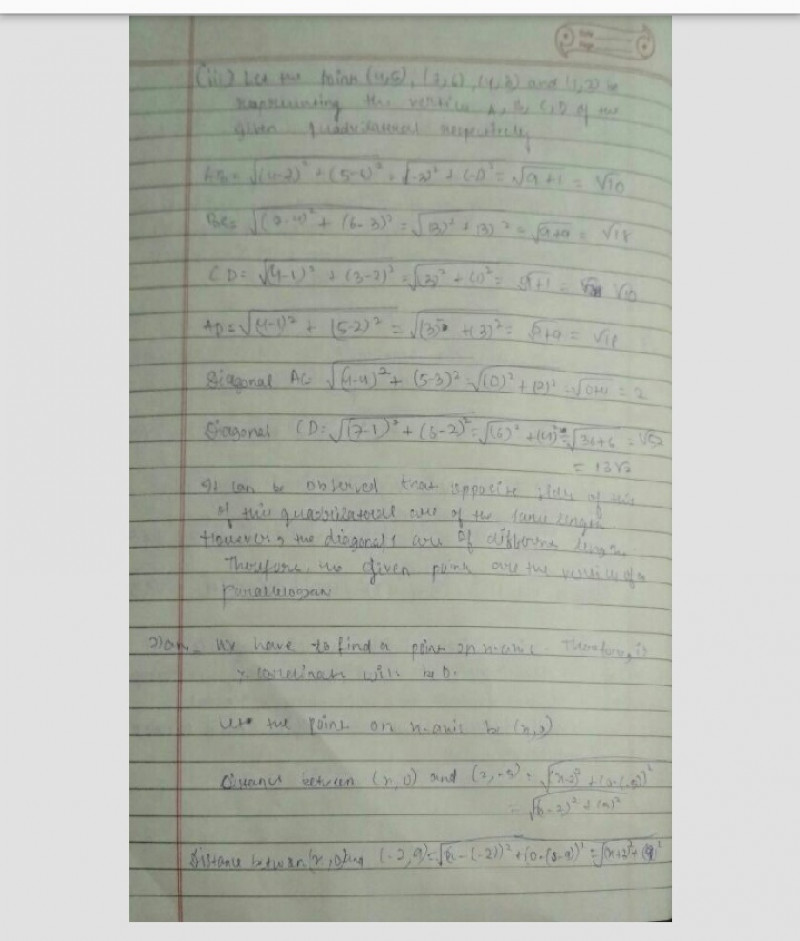 (iii) Let the point (4,5), (7,6), (4,3) and (1,2) be
representing the vertices A, B, C, D of the
given quadrilateral respectively
AB = √(4-7)² + (5-6)² = √(-3)² + (-1)² = √9+1 = √10
BC = √(7-4)² + (6-3)² = √(3)² + (3)² = √9+9 = √18
CD = √(4-1)² + (3-2)² = √(3)² + (1)² = √9+1 = √10
AD = √(4-1)² + (5-2)² = √(3)² + (3)² = √9+9 = √18
Diagonal AC = √(4-4)² + (5-3)² = √(0)² + (2)² = √0+4 = 2
Diagonal CD = √(7-1)² + (6-2)² = √(6)² + (4)² = √36+6 = √52
= 13√2
It can be observed that opposite sides of this
of this quadrilateral are of the same length
However, the diagonals are of different length.
Therefore, the given point are the vertices of a
parallelogram
2) We have to find a point on x-axis. Therefore, is
y coordinate will be 0.
Let the point on x-axis be
Distance between (x,0) and (2,-5) =
Distance between (x,0) and (-2,9) =